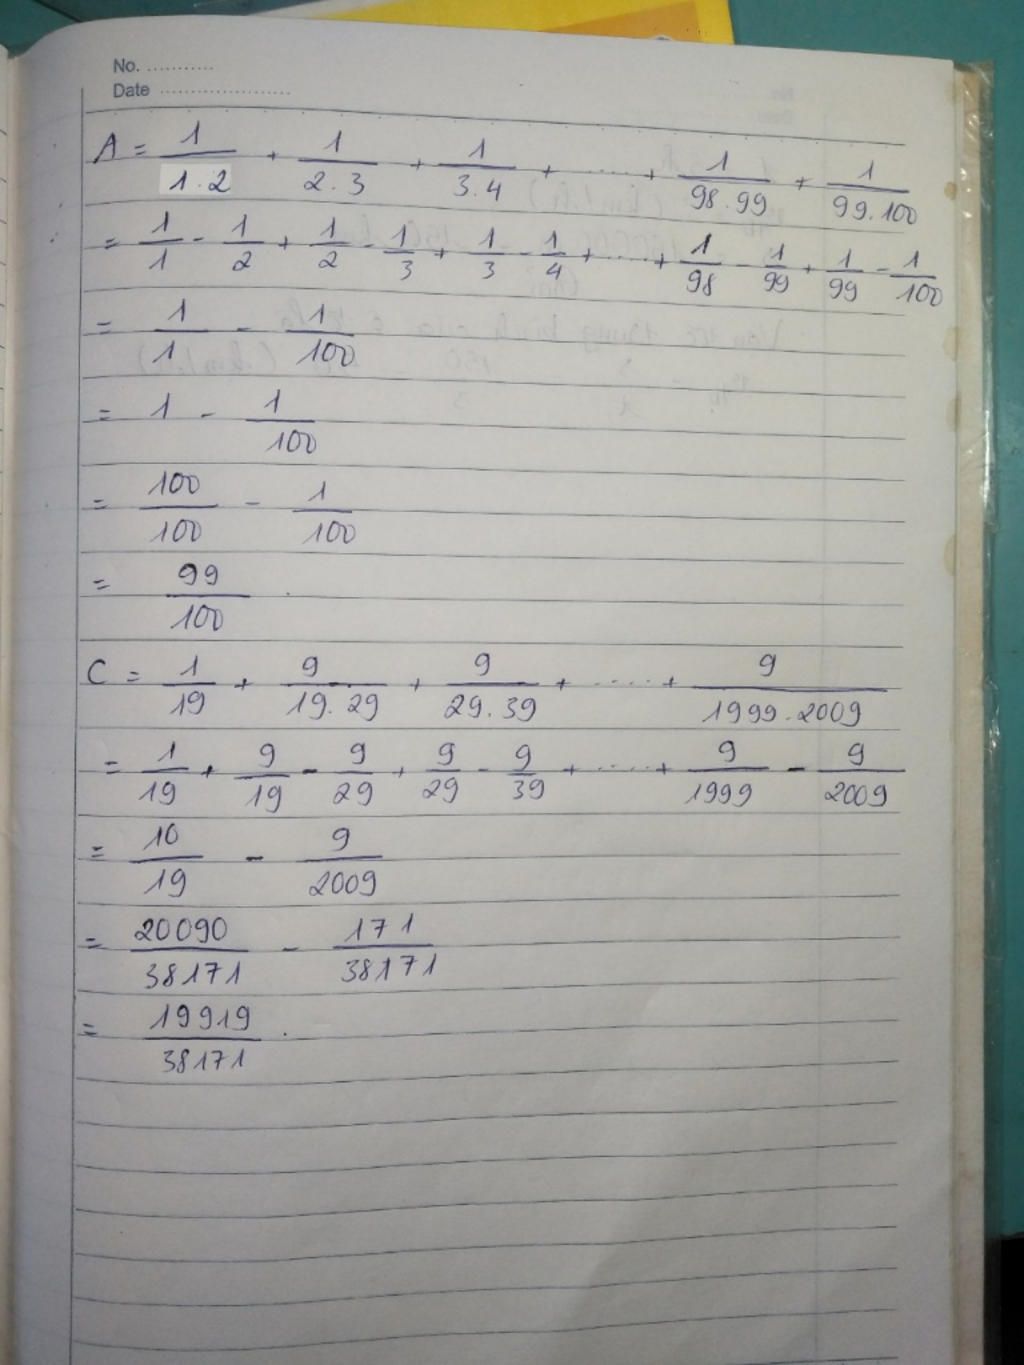 No. ...........
Date ......................
A = 1/1.2 + 1/2.3 + 1/3.4 + ..... + 1/98.99 + 1/99.100
= 1/1 - 1/2 + 1/2 - 1/3 + 1/3 - 1/4 + ..... + 1/98 - 1/99 + 1/99 - 1/100
= 1/1 - 1/100
= 1 - 1/100
= 100/100 - 1/100
= 99/100 .
C = 1/19 + 9/19.29 + 9/29.39 + ..... + 9/1999.2009
= 1/19 + 9/19 - 9/29 + 9/29 - 9/39 + ..... + 9/1999 - 9/2009
= 10/19 - 9/2009
= 20090/38171 - 171/38171
= 19919/38171 .